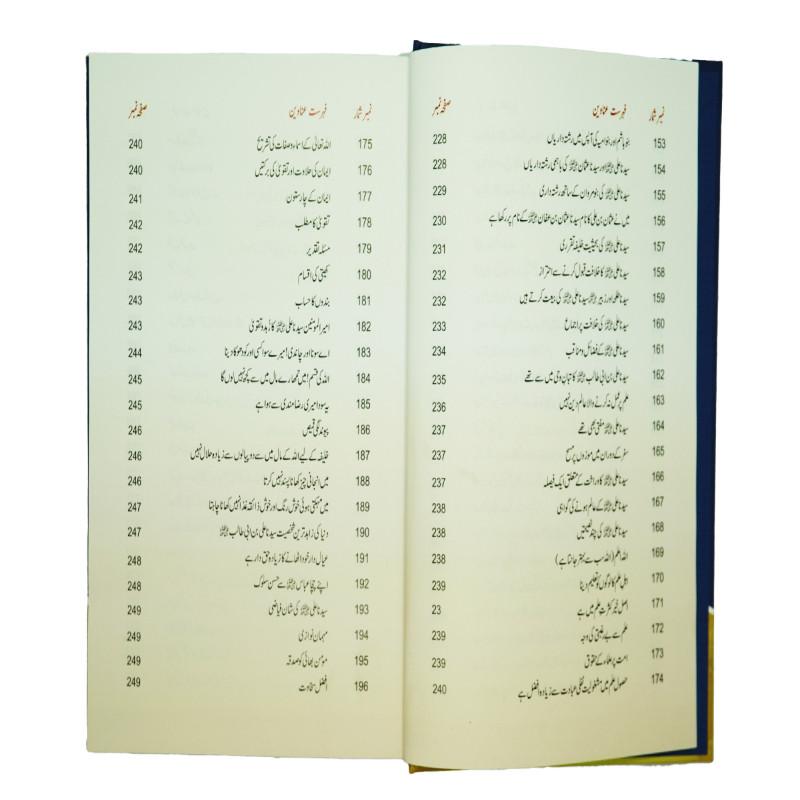 نمبر شمار فہرست عناوین صفحہ نمبر
153 بنو ہاشم اور بنو امیہ کی آپس میں رشتہ داریاں 228
154 سیدنا علی رضی اللہ عنہ اور سیدنا عثمان رضی اللہ عنہ کی باہمی رشتہ داریاں 228
155 سیدنا علی رضی اللہ عنہ کی بنو مروان کے ساتھ رشتہ داری 229
156 میں نے عثمان بن علی کا نام سیدنا عثمان بن عفان رضی اللہ عنہ کے نام پر رکھا ہے 230
157 سیدنا علی رضی اللہ عنہ کی بحیثیت خلیفہ تقرری 231
158 سیدنا علی رضی اللہ عنہ کا خلافت قبول کرنے سے احتراز 232
159 سیدنا طلحہ اور زبیر رضی اللہ عنہما سیدنا علی رضی اللہ عنہ کی بیعت کرتے ہیں 232
160 سیدنا علی رضی اللہ عنہ کی خلافت پر اجماع 233
161 سیدنا علی رضی اللہ عنہ کے فضائل و مناقب 234
162 سیدنا علی بن ابی طالب رضی اللہ عنہ کاتبان وحی میں سے تھے 235
163 علم پر عمل نہ کرنے والا عالم دین نہیں 236
164 سیدنا علی رضی اللہ عنہ مفتی بھی تھے 237
165 سفر کے دوران میں موزوں پر مسح 237
166 سیدنا علی رضی اللہ عنہ کا وراثت کے متعلق ایک فیصلہ 237
167 سیدنا علی رضی اللہ عنہ کے عالم ہونے کی گواہی 238
168 سیدنا علی رضی اللہ عنہ کی چند نصیحتیں 238
169 اللہ اعلم (اللہ سب سے بہتر جانتا ہے) 238
170 اہل علم کا لوگوں کو تعلیم دینا 238
171 اصل خیر کثرت علم میں ہے 23
172 علم سے بے رغبتی کی وجہ 239
173 امت پر علماء کے حقوق 239
174 حصول علم میں مشغولیت نفلی عبادت سے زیادہ افضل ہے 240
نمبر شمار فہرست عناوین صفحہ نمبر
175 اللہ تعالیٰ کے اسماء و صفات کی تشریح 240
176 ایمان کی حلاوت اور تقویٰ کی برکتیں 240
177 ایمان کے چار ستون 241
178 تقویٰ کا مطلب 242
179 مسئلہ تقدیر 242
180 کھیتی کی اقسام 243
181 بندوں کا حساب 243
182 امیر المؤمنین سیدنا علی رضی اللہ عنہ کا زہد و تقویٰ 243
183 اے سونا اور چاندی! میرے سوا کسی اور کو دھوکا دینا 244
184 اللہ کی قسم! میں تمھارے مال میں سے کچھ نہیں لوں گا 245
185 یہ سودا میری رضا مندی سے ہوا ہے 245
186 پیوند لگی قمیص 246
187 خلیفہ کے لیے اللہ کے مال میں سے دو پیالوں سے زیادہ حلال نہیں 246
188 میں انجانی چیز کھانا پسند نہیں کرتا 246
189 میں مہکتی ہوئی خوش رنگ اور خوش ذائقہ غذا نہیں کھانا چاہتا 247
190 دنیا کی زاہد ترین شخصیت سیدنا علی بن ابی طالب رضی اللہ عنہ 247
191 عیال دار خود اٹھانے کا زیادہ حق دار ہے 248
192 اپنے چچا عباس رضی اللہ عنہ سے حسن سلوک 248
193 سیدنا علی رضی اللہ عنہ کی شان فیاضی 249
194 مہمان نوازی 249
195 مومن بھائی کو صدقہ 249
196 افضل سخاوت 249